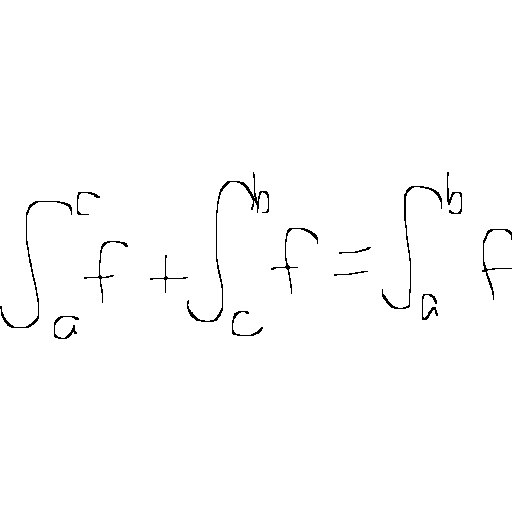 ∫_a^c f + ∫_c^b f = ∫_a^b f